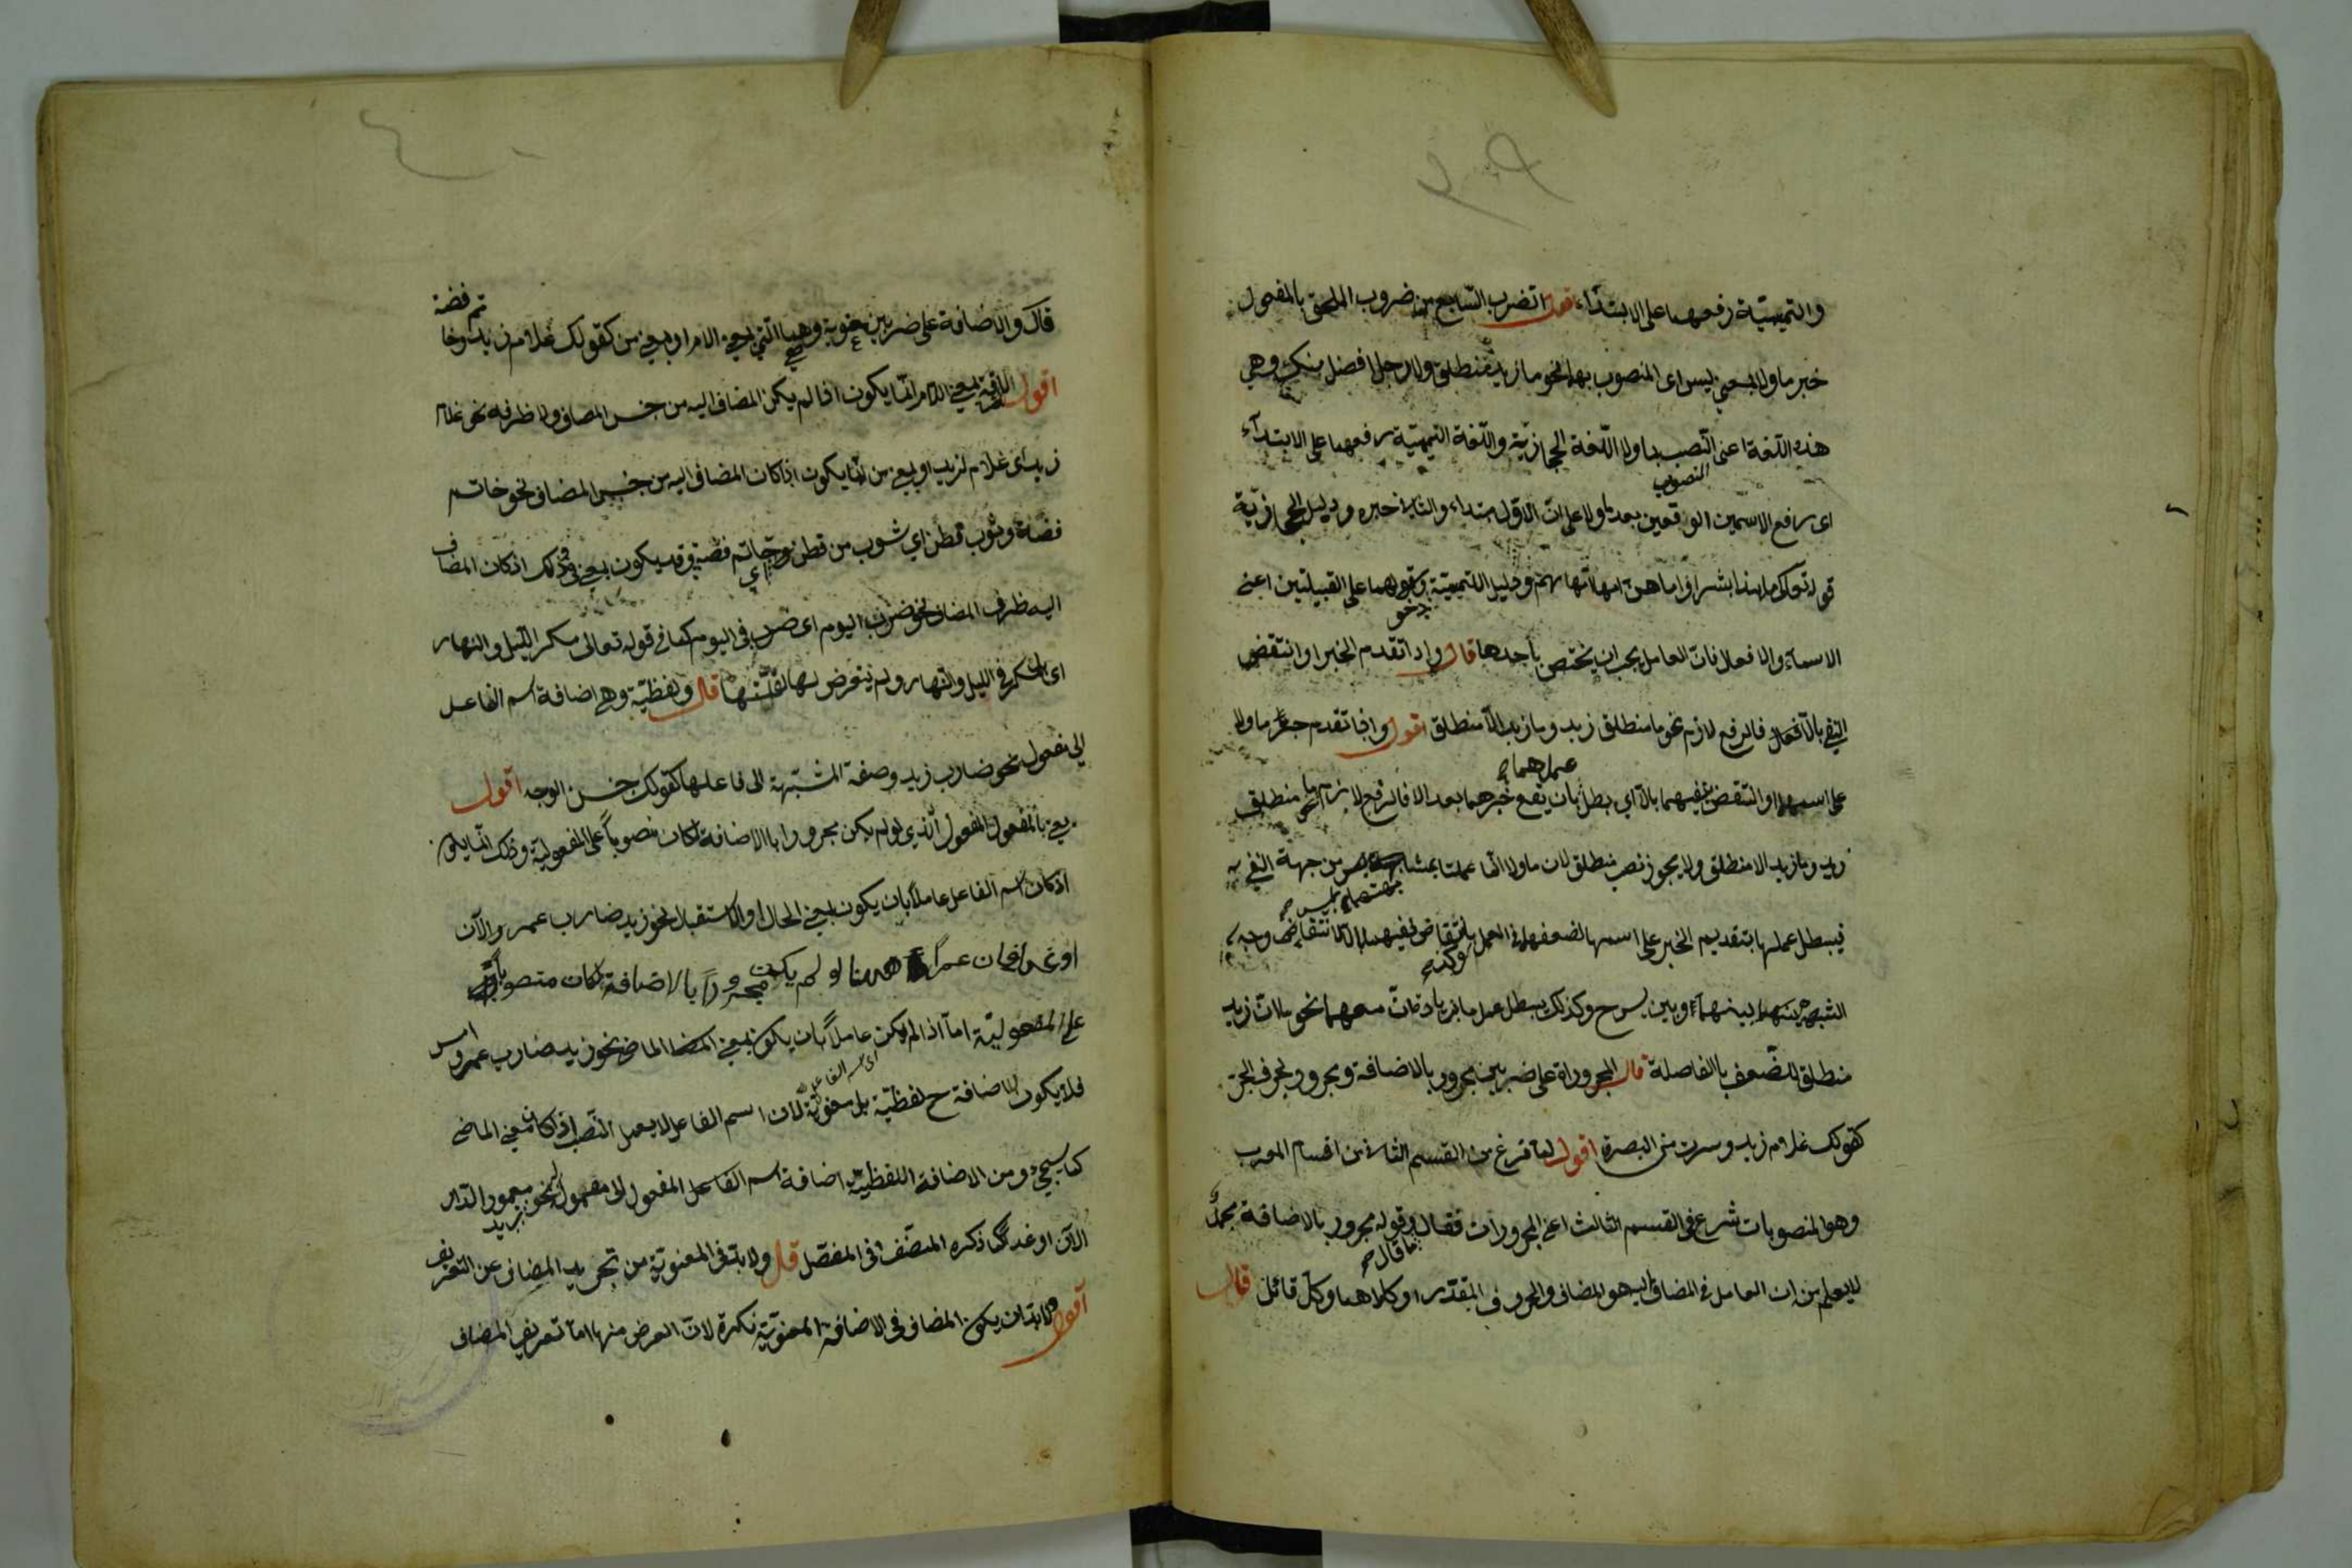 والتميميّة رفعهما على الابتداء اقول الضرب السّابع من ضروب الملحق بالمفعول
خبر ما ولا بمعنى ليس اى المنصوب بهما نحو ما زيد منطلق ولا رجل افضل منك وهى
هذه اللّغة اعنى النّصب بما ولا اللّغة الحجازيّة واللّغة التميميّة رفعهما على الابتدآء
المنصوب
اى رافع الاسمين الوقعين بعد ما ولا على انّ الاوّل مبتداء والثانى خبره ودليل الحجازيّة
قوله تعالى ما هذا بشرا وما هنّ امهاتهم ودليل التميميّة دخولهما على القبيلتين اعنى
الاسمآء والافعال فانّ العامل يجب ان يختص بأحدها قال واذا تقدم الخبر او انتقض
النفى بالّا فالرفع لازم نحو ما منطلق زيد وما زيد الّا منطلق اقول واذا تقدم خبر ما ولا
عملهما
على اسمهما او انتقض نفيهما بالّا اي بطل بأن يقع خبرهما بعد الا فالرفع لازم نحو ما منطلق
زيد وما زيد الا منطلق ولا يجوز نصب منطلق لان ما ولا انّما عملتا بمشابهة ليس من جهة النفى
فيبطل عملهما بتقديم الخبر على اسمهما لضعفهما فى العمل بانتقاض نفيهما بالّا لانتقاض وجه
الشبه بينهما وبين ليس ح وكذلك يبطل عمل ما اذا زيد انّ معهما نحو ما انّ زيد
منطلق للضّعف باالفاصلة قال المجرورة على ضربين مجرور بالاضافة ومجرور بحرف الجرّ
كقولك غلام زيد وسرت من البصرة اقول لما فرغ من القسم الثانى من اقسام المعرب
وهو المنصوبات شرع فى القسم الثالث اعنى المجرورات فقال وقوله مجرور بالاضافة مجملٌ
ما قال
لا يعلم من ان العامل فى المضاف اليه هو المضاف والحروف المقدّر او كلاهما وكلّ قائل قال
قال والاضافة على ضربين معنوية وهى الّتى بمعنى الام او بمعنى من كقولك غلام زيد وخاتم فضة
اقول الاضافة بمعنى اللام انّما يكون اذا لم يكن المضاف اليه من جنس المضاف ولا ظرفه نحو غلام
زيد اى غلام لزيد او بمعنى من انّما يكون اذا كان المضاف اليه من جنس المضاف نحو خاتم
فضة وثوب قطن اي ثوب من قطن وخاتم فضة وقد يكون بمعنى فى وذلك اذ كان المضاف
اليه ظرف المضاف نحو ضرب اليوم اى ضرب فى اليوم كما فى قوله تعالى مكر اللّيل والنهار
اى مكر فى الليل والنهار ولم يتعرض لها لقلّتها قال ولفظيّة وهى اضافة اسم الفاعل
الى مفعول نحو ضارب زيد وصفة المشبّهة الى فاعلها كقولك حسن الوجه اقول
يعنى بالمفعول المفعول الّذي لو لم يكن مجرورا باالاضافة لكان منصوباً على المفعولية وذلك انّما يكون
اذ كان اسم الفاعل عاملاً بان يكون بمعنى الحال او الاستقبال نحو زيد ضارب عمرو الآن
او غدا فان عمراً ههنا لو لم يكن مجروراً بالاضافة لكان منصوباً
على المفعوليّة امّا اذا لم يكن عاملاً بان يكون بمعنى الماضى نحو زيد ضارب عمرو امس
اى اسم الفاعل
فلا يكون الاضافة ح لفظيّة بل معنويّة لان اسم الفاعل لا يعمل النّصب اذ كان بمعنى الماضى
كما سيجئ ومن الاضافة اللفظيّة اضافة اسم الفاعل المفعول الى مفعوله نحو زيد معمور الدّار
الآن او غدا كما ذكره المصنّف فى المفصّل قال ولا بدّ فى المعنويّة من تجريد المضاف عن التعريف
اقول ولا بدّ ان يكون المضاف فى الاضافة المعنويّة نكرة لانّ الغرض منها امّا تعريف المضاف